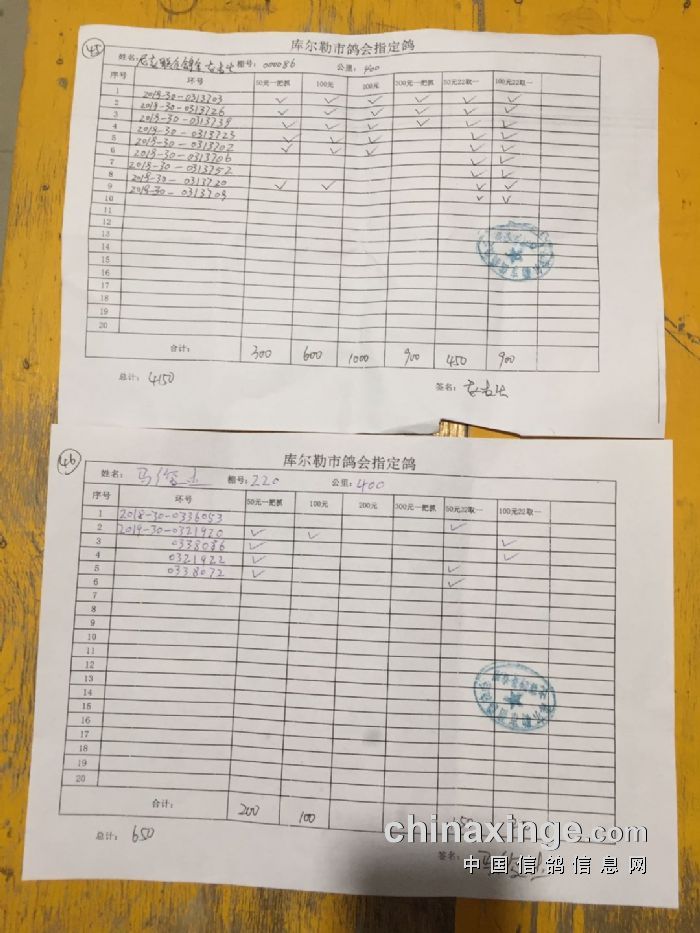 45
库尔勒市鸽会指定鸽
姓名: 棚号: 000086 公里: 400
序号 环号 50元一把抓 100元 200元 300元一把抓 50元22取一 100元22取一
1 2018-30-0313703 ✓ ✓ ✓ ✓ ✓ ✓
2 2018-30-0313726 ✓ ✓ ✓ ✓ ✓ ✓
3 2018-30-0313739 ✓ ✓ ✓ ✓ ✓ ✓
4 2018-30-0313723 ✓ ✓
5 2018-30-0313702 ✓ ✓ ✓ ✓ ✓
6 2018-30-0313706 ✓ ✓ ✓ ✓ ✓
7 2018-30-0313752 ✓ ✓
8 2018-30-0313720
9 2018-30-0313709 ✓ ✓ ✓ ✓
10 ✓ ✓
11
12
13
14
15
16
17
18
19
20
合计: 300 600 1000 900 450 900
总计: 4150 签名:
46
库尔勒市鸽会指定鸽
姓名: 棚号: 220 公里: 400
序号 环号 50元一把抓 100元 200元 300元一把抓 50元22取一 100元22取一
1 2018-30-0336053 ✓
2 2019-30-0321920 ✓ ✓
3 0338086 ✓ ✓
4 0321922 ✓ ✓
5 0338072 ✓ ✓
6 ✓
7
8
9
10
11
12
13
14
15
16
17
18
19
20
合计: 200 100
总计: 650 签名:
chinaxinge.com
中国信鸽信息网